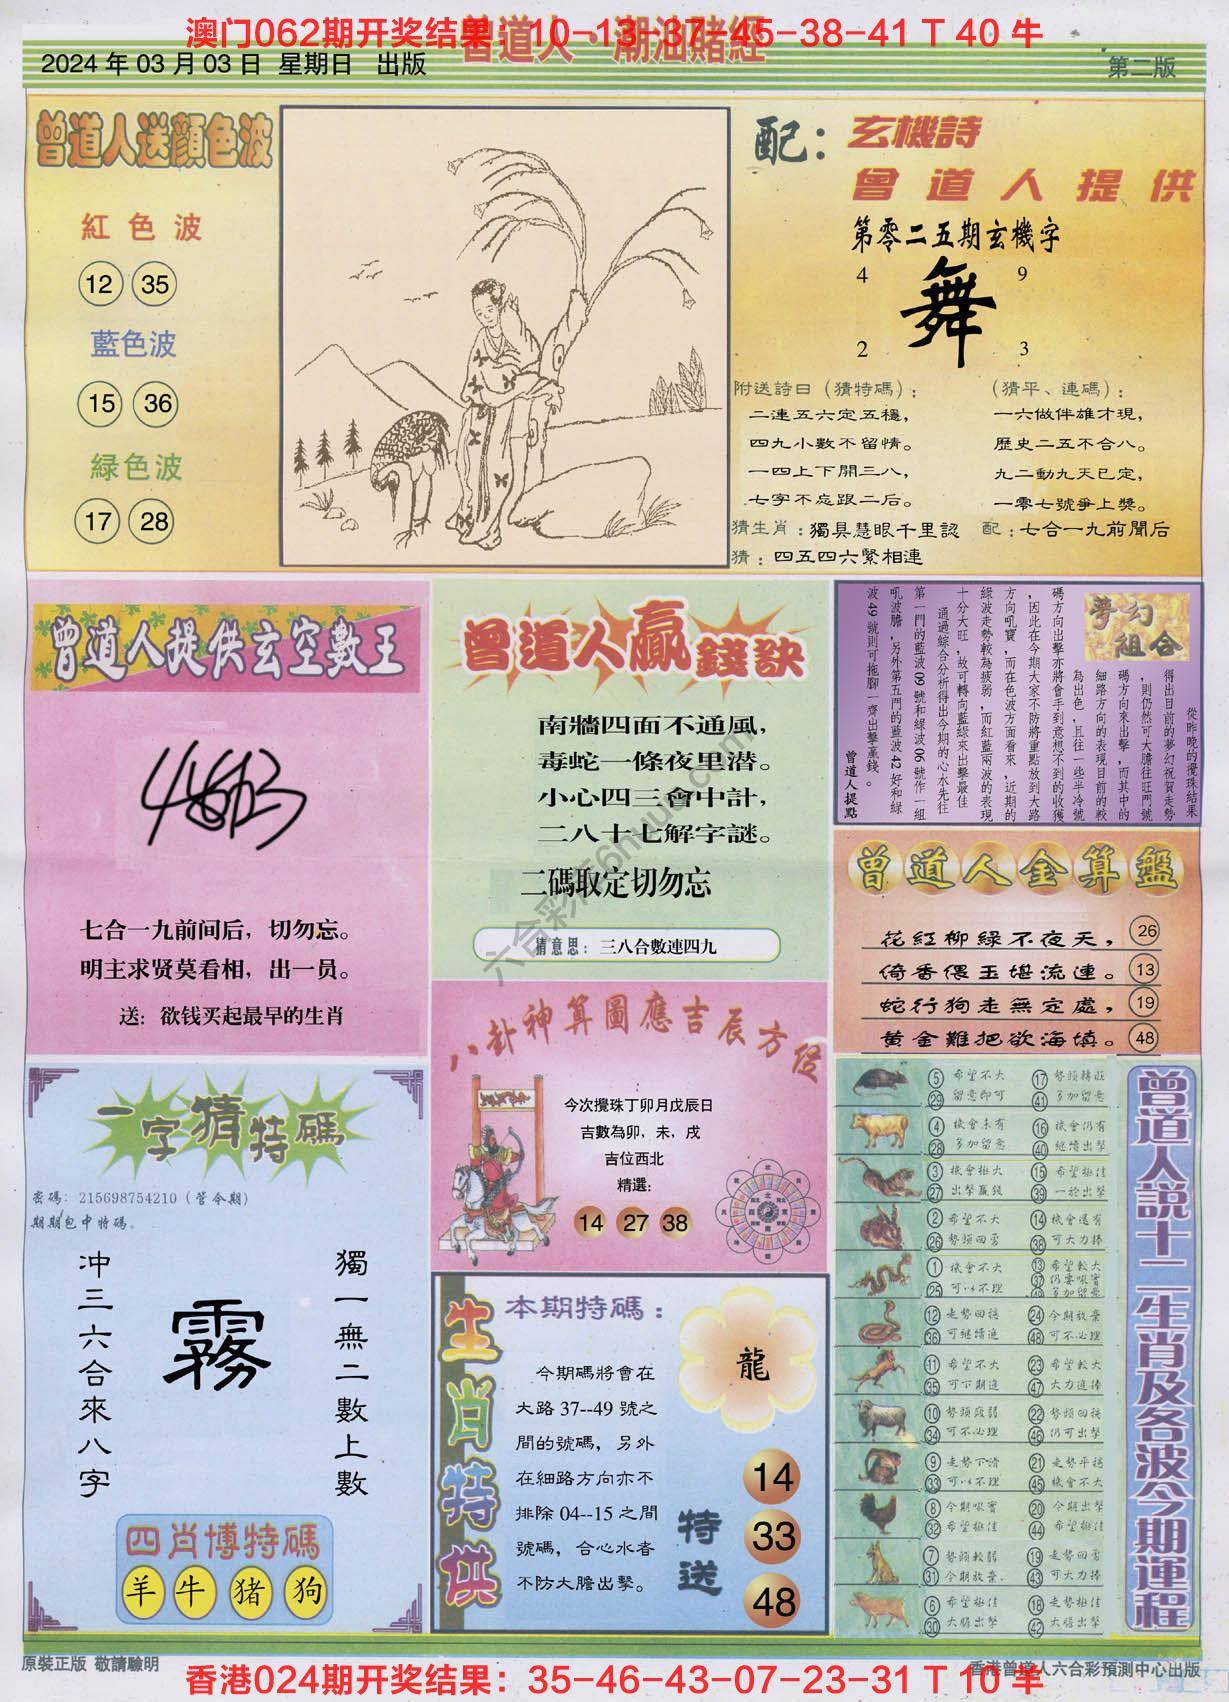 澳门062期开奖结果：10-13-37-45-38-41 T 40 牛
曾道人·潮汕賭經
2024 年 03 月 03 日 星期日 出版
第二版
曾道人送顔色波
紅色波
12 35
藍色波
15 36
緑色波
17 28
配：玄機詩
曾道人提供
第零二五期玄機字
4 9
舞
2 3
附送詩曰（猜特碼）：
二連五六定五穩，
四九小數不留情。
一四上下開三八，
七字不忘跟二后。
（猜平、連碼）：
一六做伴雄才現，
歷史二五不合八。
九二動九天已定，
一零七號爭上獎。
猜生肖：獨具慧眼千里認
配：七合一九前聞后
猜：四五四六緊相連
曾道人提供玄空數王
七合一九前间后，切勿忘。
明主求贤莫看相，出一员。
送：欲钱买起最早的生肖
曾道人贏錢訣
南牆四面不通風，
毒蛇一條夜里潜。
小心四三會中計，
二八十七解字謎。
二碼取定切勿忘
猜意思：三八合數連四九
夢幻組合
從昨晚的攪珠結果
得出目前的夢幻祝賀走勢
，則仍然可大膽往旺門號
碼方向來出擊，而其中的
細路方向的表現目前的較
為出色，且往一些半冷號
碼方向出擊亦將會手到意想不到的收獲
，因此在今期大家不防將重點放到大路
方向吼寶，而在色波方面看來，近期的
綠波走勢較為疲弱，而紅藍兩波的表現
十分大旺，故可轉向藍綠來出擊最佳
通過綜合分析得出今期的心水先往
第一門的藍波 09 號和綠波 06 號作一組
吼波膽，另外第五門的藍波 42 好和綠
波 49 號則可拖腳一齊出擊贏錢。
曾道人提點
曾道人金算盤
花紅柳綠不夜天， 26
倚香偎玉堪流連。 13
蛇行狗走無定處， 19
黄金難把欲海填。 48
八卦神算圖應吉辰方位
今次攪珠丁卯月戊辰日
吉數為卯，未，戌
吉位西北
精選：
14 27 38
一字猜特碼
密碼：215698754210（管令期）
期期包中特碼。
獨一無二數上數
霧
冲三六合來八字
四肖博特碼
羊 牛 猪 狗
生肖特供
本期特碼：
龍
今期碼將會在
大路 37--49 號之
間的號碼，另外
在細路方向亦不
排除 04--15 之間
號碼，合心水者
不防大膽出擊。
特送
14
33
48
曾道人説十二生肖及各波今期運程
5 希望不大 17 勢頭轉旺
29 留意即可 41 多加留意
4 機會未有 16 機會仍有
28 多加留意 40 繼續出擊
3 機會挺大 15 希望挺佳
27 出擊贏錢 39 一於出擊
2 希望不大 14 機會還有
26 勢頭回勇 38 可大力捧
1 機會不大 13 希望較大
25 可以不理 37 仍要吼實
49 多加留意
12 走勢回穩 24 今期放棄
36 可繼續追 48 可不必理
11 希望不大 23 希望較大
35 可下期追 47 大力追捧
10 勢頭疲弱 22 勢頭回穩
34 可不必理 46 仍可出擊
9 走勢下滑 21 走勢平穩
33 可以不理 45 機會不大
8 今期吼實 20 今期出擊
32 希望挺佳 44 希望挺佳
7 勢頭較弱 19 走勢回勇
31 今期放棄. 43 可大力捧
6 希望挺佳 18 走勢挺佳
30 大膽出擊 42 大膽出擊
原裝正版 敬請驗明
香港024期开奖结果：35-46-43-07-23-31 T 10 羊
香港曾道人六合彩預測中心出版